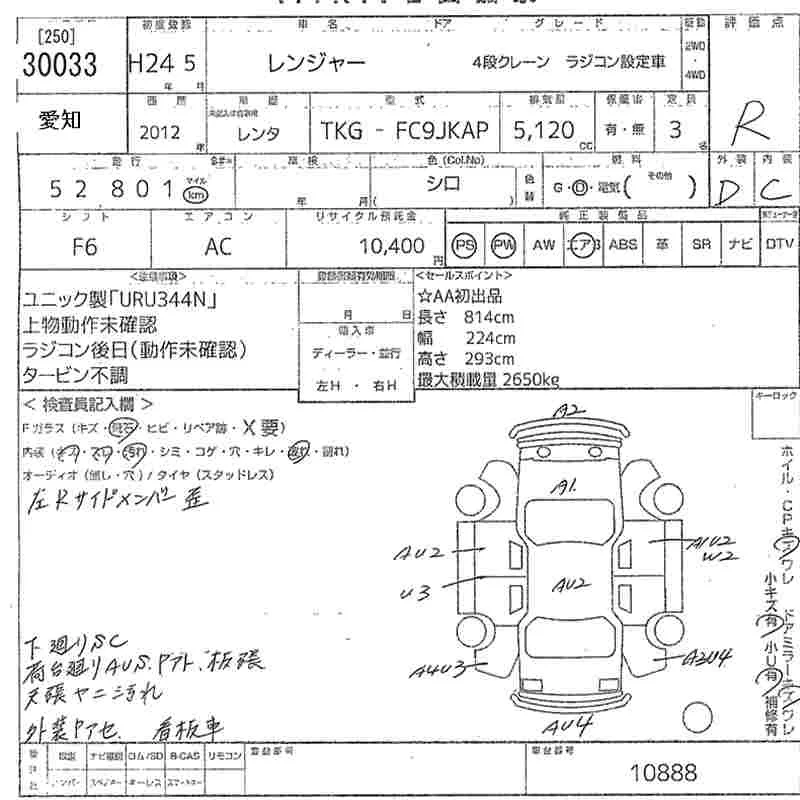 [250]
30033
愛知
初度登録
H24 5
年 月
車名 ドア グレード
レンジャー 4段クレーン ラジコン設定車
駆動
2WD
・
4WD
評価点
R
2012
年
車歴
レンタ
型式
TKG - FC9JKAP
排気量
5,120
CC
有・無
定員
3
名
外装 内装
D C
走行
52,801
マイル
km
車検
年 月(
色(Col.No)
シロ
)
色替
燃料
G・D・電気( その他 )
シフト
F6
エアコン
AC
リサイクル預託金
10,400
円
純正装備品
PS PW AW エアB ABS 革 SR ナビ DTV
<注意事項>
ユニック製「URU344N」
上物動作未確認
ラジコン後日(動作未確認)
タービン不調
月 日
輸入車
ディーラー・並行
左H ・ 右H
<セールスポイント>
☆AA初出品
長さ 814cm
幅 224cm
高さ 293cm
最大積載量 2650kg
< 検査員記入欄 >
Fガラス (キズ・飛石・ヒビ・リペア跡・X要)
内装 (キズ・スレ・汚れ・シミ・コゲ・穴・キレ・割れ)
オーディオ (無し・穴) / タイヤ (スタッドレス)
左Rサイドメンバー歪
下廻りSC
荷台廻りAUS.Pアト、板張
天張ヤニ汚れ
外装Pアセ 看板車
A2
A1
AU2
AU2
U3
A1U2
W2
A4U3
A3U4
AU4
キーロック
ホイル・CPキズワレ
ドアミラーキズワレ
小キズ有 小U有 補修有
登録番号
車台番号
10888
ナビ CD/SD B-CAS リモコン
キーレス